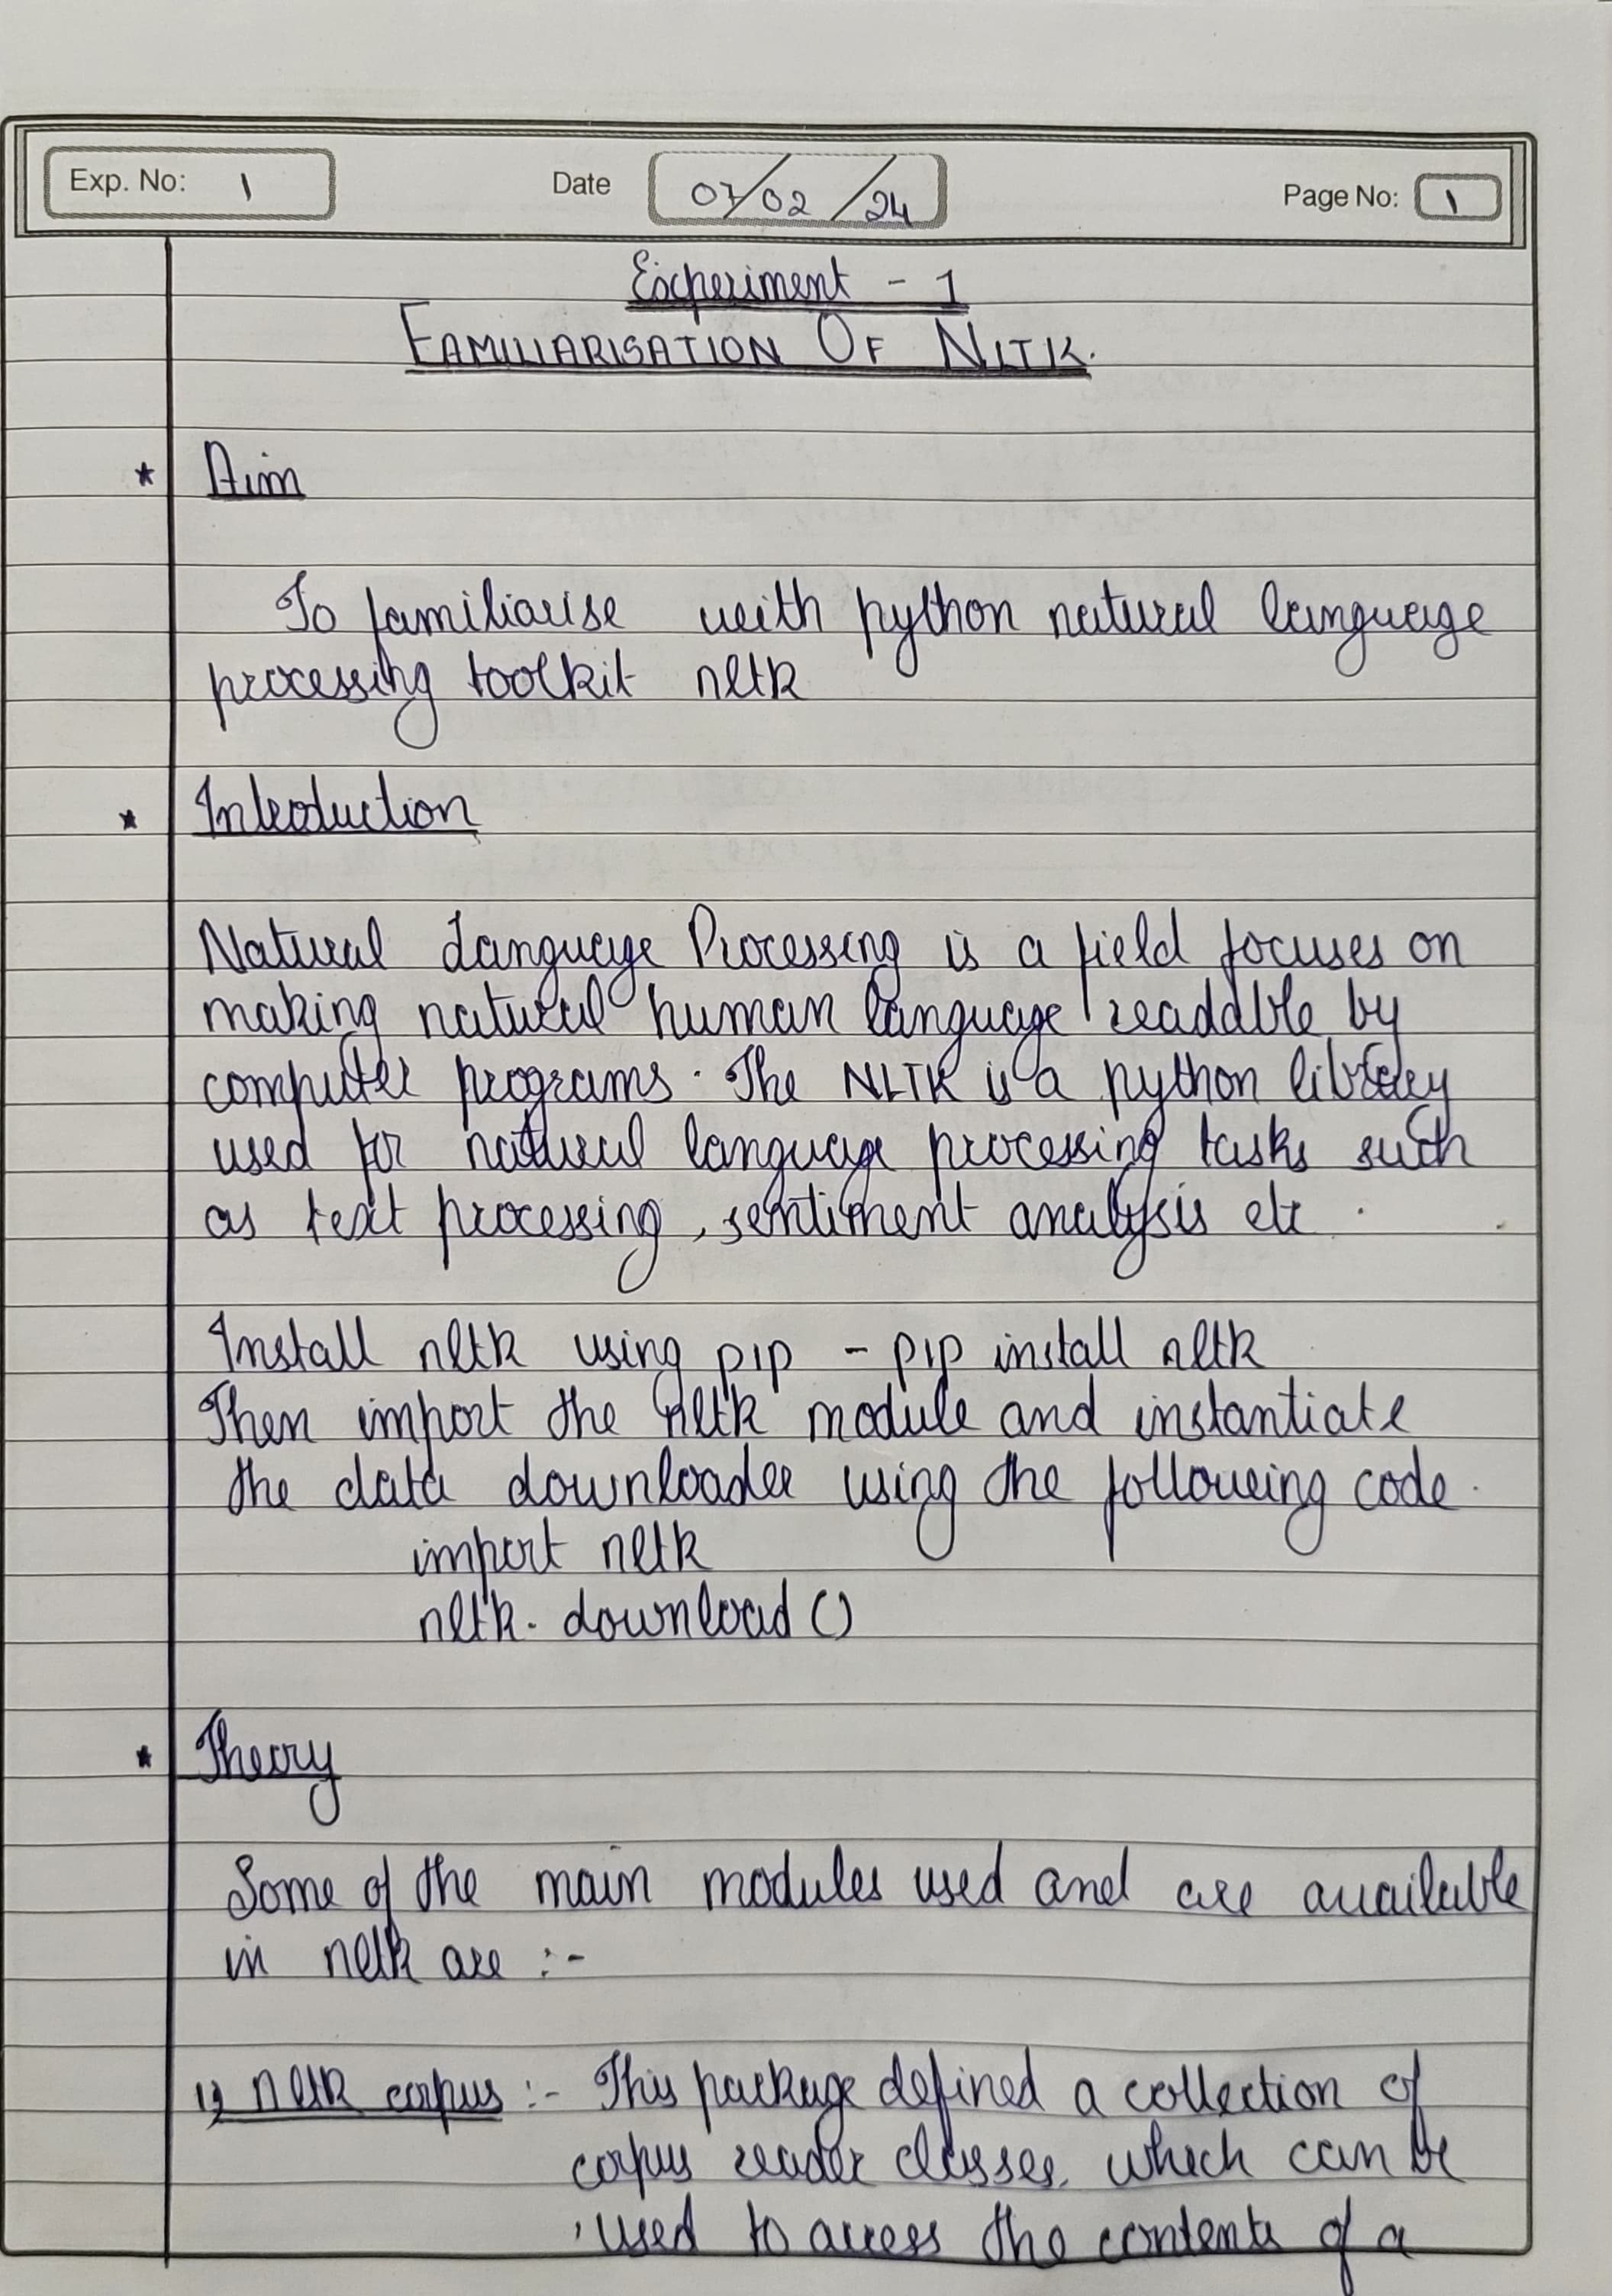 Exp. No: 1 Date 07/02/24 Page No: 1
Experiment - 1
FAMILIARISATION OF NLTK.
* Aim
To familiarise with python natural language
processing toolkit nltk
* Introduction
Natural Language Processing is a field focuses on
making natural human language readable by
computer programs. The NLTK is a python library
used for natural language processing tasks such
as text processing, sentiment analysis etc.
Install nltk using pip - pip install nltk
Then import the nltk module and instantiate
the data downloader using the following code.
import nltk
nltk.download()
* Theory
Some of the main modules used and are available
in nltk are :-
1) nltk corpus :- This package defined a collection of
corpus reader classes, which can be
used to access the contents of a